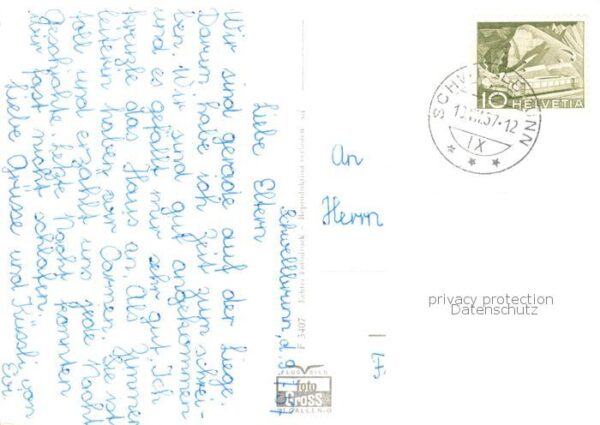 Schwellbrunn, d. 9.
Liebe Eltern
Wir sind gerade auf der Liege.
Darum habe ich Zeit zum schrei-
ben. Wir sind gut angekommen
und es gefällt mir sehr gut. Ich
das Haus an. Als Zimmer-
haben wir Carmen. Sie ist
toll und erzählt uns jede Nacht
Geschichte. Letzte Nacht konnten
wir fast nicht schlafen.
Liebe Grüsse und Küssli von
An
Herrn
10
HELVETIA
IX
F 3407 Echter Fotodruck - Reproduktion verboten
FLUGBILD
foto
Gross
ST.GALLEN-O
privacy protection
Datenschutz